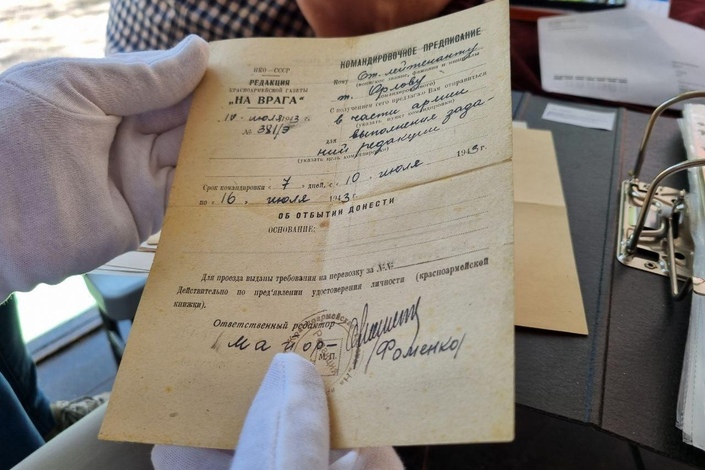 НКО—СССР
РЕДАКЦИЯ
КРАСНОАРМЕЙСКОЙ ГАЗЕТЫ
„НА ВРАГА"
10 июля 1943 г.
№ 381/Э
КОМАНДИРОВОЧНОЕ ПРЕДПИСАНИЕ
Кому Ст. лейтенанту
(воинское звание, фамилия и инициалы
т. Орлову
командированного)
С получением сего предлагаю Вам отправиться
в части армии
(указать пункт командировки)
для выполнения зада
ний редакции
(указать цель командировки)
Срок командировки „ 7 „ дней, с „ 10 „ июля 1943г.
по „ 16 „ июля 1943г.
ОБ ОТБЫТИИ ДОНЕСТИ
ОСНОВАНИЕ:
Для проезда выданы требования на перевозку за №№
Действительно по пред'явлении удостоверения личности (красноармейской
книжки).
Ответственный редактор
Майор—
М.П.
Фоменко